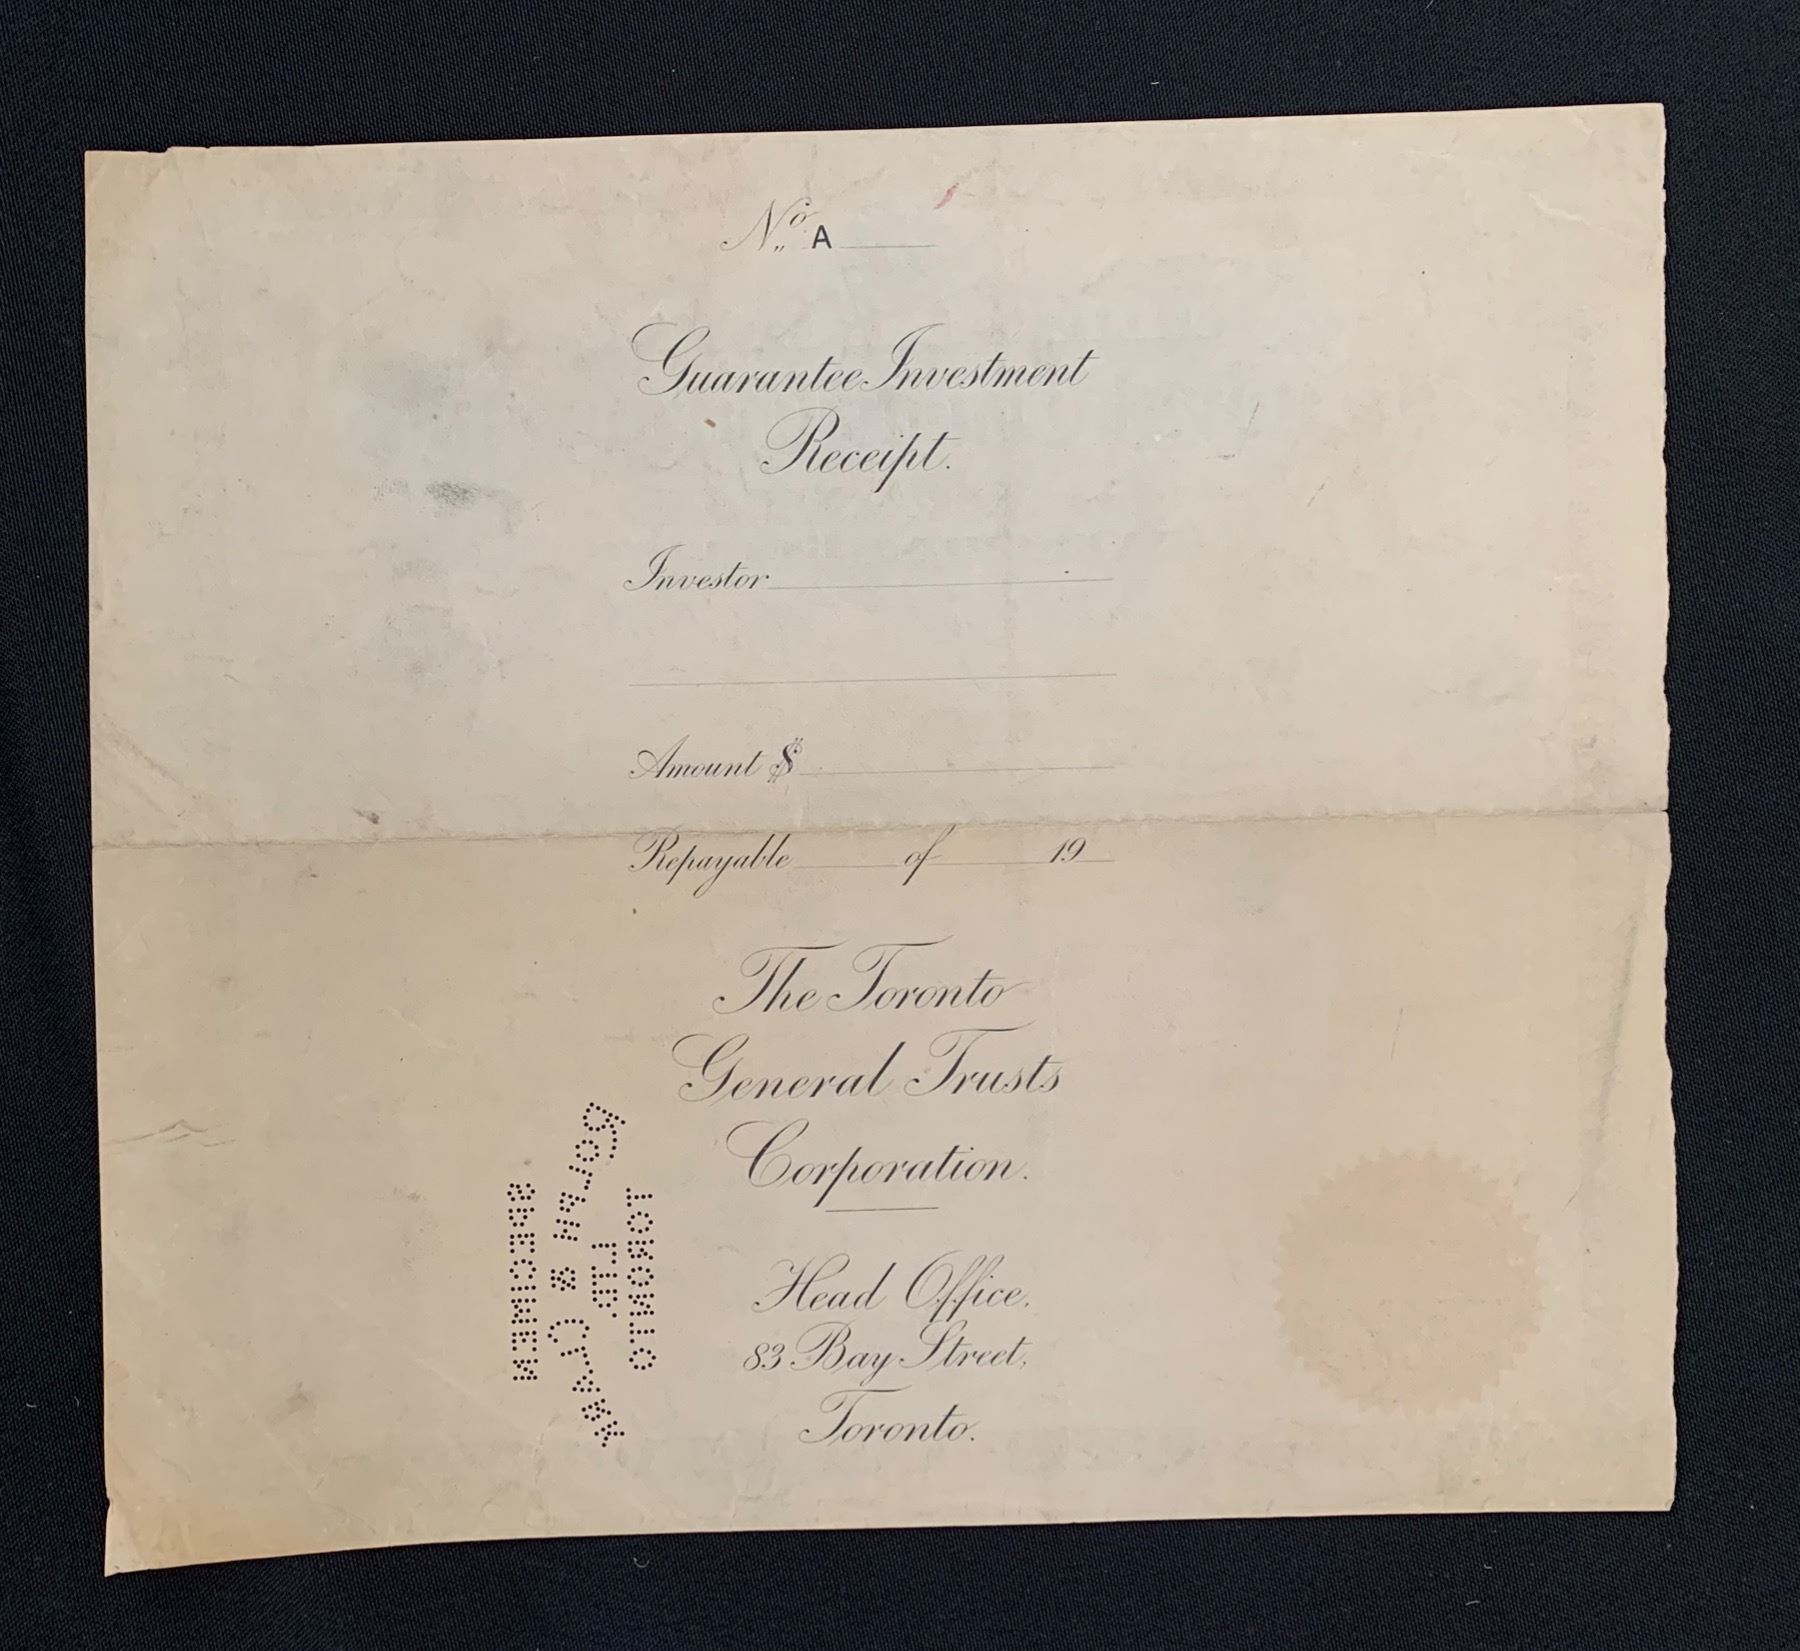 No. A
Guarantee Investment
Receipt.
Investor
Amount $
Repayable of 19
The Toronto
General Trusts
Corporation.
Head Office,
83 Bay Street,
Toronto.
SPECIMEN
& CLARK
LTD.
TORONTO